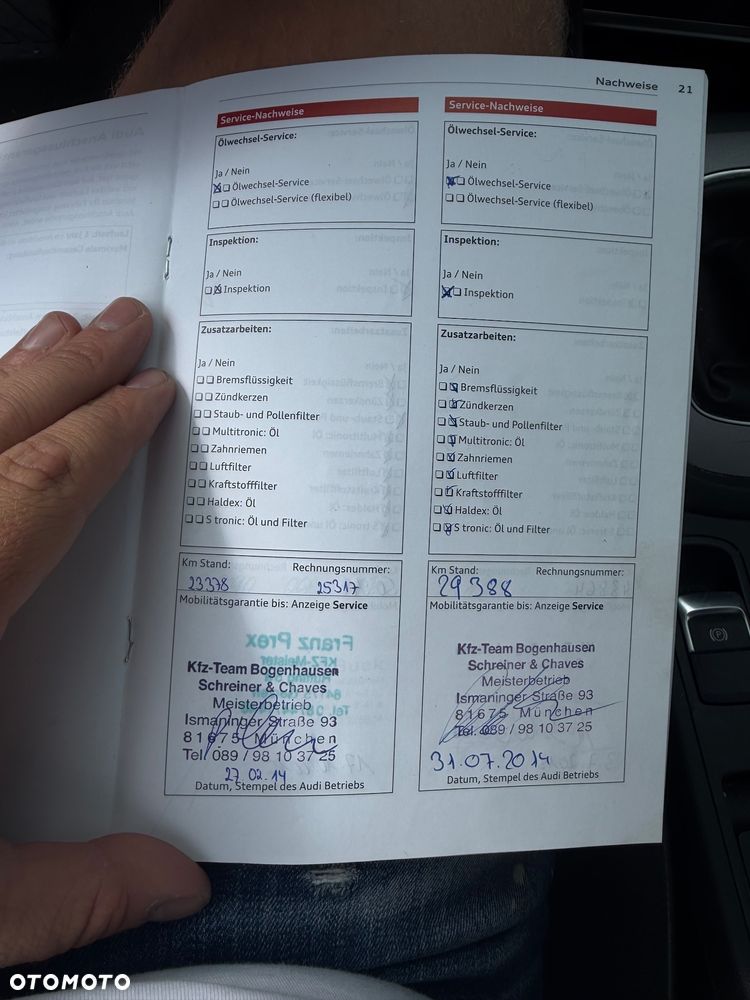 Nachweise 21
Service-Nachweise
Ölwechsel-Service:
Ja / Nein
Ölwechsel-Service
Ölwechsel-Service (flexibel)
Inspektion:
Ja / Nein
Inspektion
Zusatzarbeiten:
Ja / Nein
Bremsflüssigkeit
Zündkerzen
Staub- und Pollenfilter
Multitronic: Öl
Zahnriemen
Luftfilter
Kraftstofffilter
Haldex: Öl
S tronic: Öl und Filter
Km Stand: Rechnungsnummer:
23378 25317
Mobilitätsgarantie bis: Anzeige Service
Kfz-Team Bogenhausen
Schreiner & Chaves
Meisterbetrieb
Ismaninger Straße 93
81675 München
Tel. 089 / 98 10 37 25
27.02.14
Datum, Stempel des Audi Betriebs
Service-Nachweise
Ölwechsel-Service:
Ja / Nein
Ölwechsel-Service
Ölwechsel-Service (flexibel)
Inspektion:
Ja / Nein
Inspektion
Zusatzarbeiten:
Ja / Nein
Bremsflüssigkeit
Zündkerzen
Staub- und Pollenfilter
Multitronic: Öl
Zahnriemen
Luftfilter
Kraftstofffilter
Haldex: Öl
S tronic: Öl und Filter
Km Stand: Rechnungsnummer:
29388
Mobilitätsgarantie bis: Anzeige Service
Kfz-Team Bogenhausen
Schreiner & Chaves
Meisterbetrieb
Ismaninger Straße 93
81675 München
Tel. 089 / 98 10 37 25
31.07.2014
Datum, Stempel des Audi Betriebs
Franz Prex
KFZ-Meister
OTOMOTO